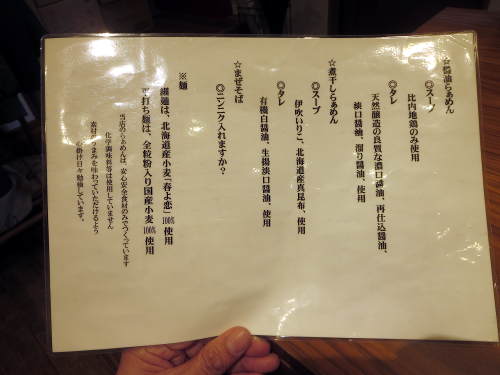 ☆醤油らぁめん
◎スープ
比内地鶏のみ使用
◎タレ
天然醸造の良質な濃口醤油、再仕込醤油、
淡口醤油、溜り醤油、使用
☆煮干しらぁめん
◎スープ
伊吹いりこ、北海道産真昆布、使用
◎タレ
有機白醤油、生揚淡口醤油、使用
☆まぜそば
◎ニンニク入れますか？
※麺
細麺は、北海道産小麦「春よ恋」100％使用
平打ち麺は、全粒粉入り国産小麦100％使用
当店のらぁめんは、安心安全食材のみでつくっています
化学調味料等は使用していません
素材のうまみを味わっていただけるよう
心掛け日々勉強しています。